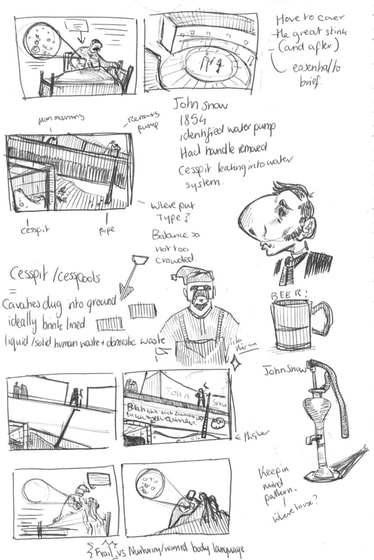 Have to cover
the great stink
(and after)
essential to
brief
John Snow
1854
identified water pump
Had handle removed
Cesspit leaking into water
system
pump
cesspit
pipe
where put
Type?
Balance so
not too
crowded.
Cesspit/cesspools
=
Cavities dug into ground
ideally brick lined
liquid/solid human waste + domestic waste
BEER!
John Snow
higher
Keep in
mind
pattern.
Frail vs Nurturing/worried body language